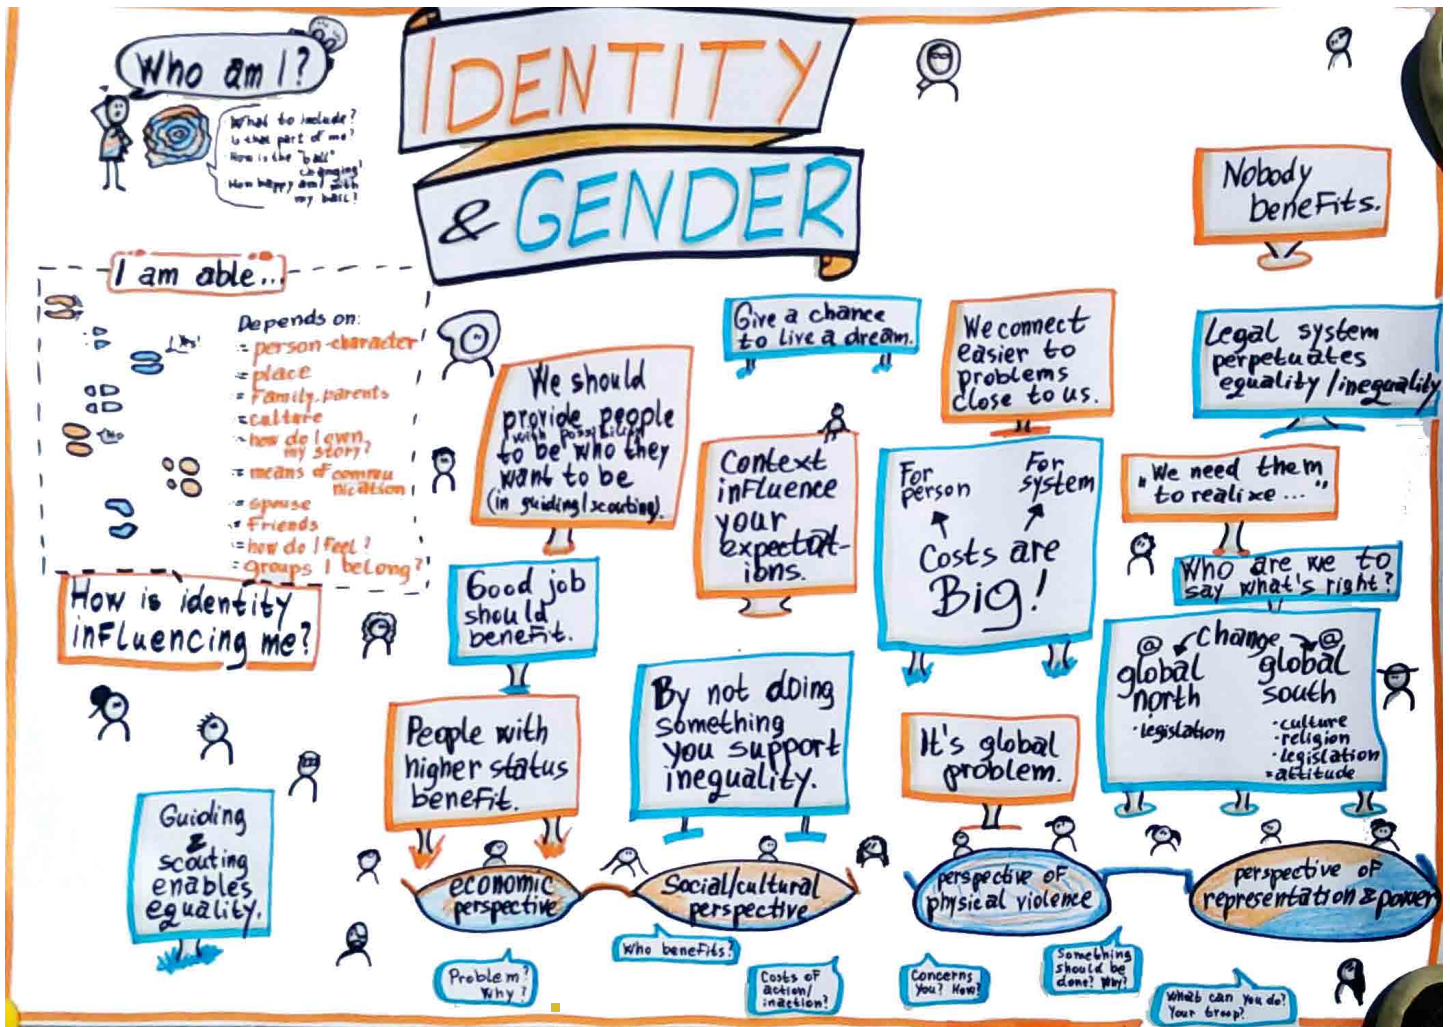 Who am I?
What to include?
Is that part of me?
How is the "ball"
changing?
How happy am I with
my ball?
IDENTITY
& GENDER
I am able...
Yes!
No
Depends on:
= person-character
= place
= Family, parents
= culture
= how do I own
my story?
= means of commu
nication
= spouse
= Friends
= how do I feel?
= groups I belong?
How is identity
influencing me?
Guiding
&
scouting
enables
equality.
We should
provide people
with possibility
to be who they
want to be
(in guiding/scouting).
Good job
should
benefit.
People with
higher status
benefit.
Give a chance
to live a dream.
Context
influence
your
expectat-
ions.
By not doing
something
you support
inequality.
We connect
easier to
problems
close to us.
For
person
For
system
Costs are
Big!
It's global
problem.
Nobody
benefits.
Legal system
perpetuates
equality/inequality
"We need them
to realixe..."
Who are we to
say what's right?
change
@
global
north
·legislation
@
global
south
·culture
·religion
·legislation
=attitude
economic
perspective
Social/cultural
perspective
perspective of
physical violence
perspective of
representation & power
Problem?
Why?
Who benefits?
Costs of
action/
inaction?
Concerns
you? How?
Something
should be
done? Why?
What can you do?
Your troop?